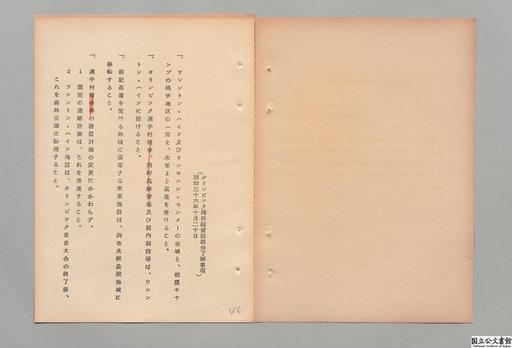 オリンピック関係閣僚懇談会了解事項
(昭和三十六年十月二十日)
一、ワシントン・ハイツ及びリンカーン・センターの全域と、朝霞キャ
ンプの桃手地区の一部を、米軍より返還を受けること。
一、オリンピック選手村
及び屋内競技場は、ワシン
トン・ハイツに設けること。
一、前記返還を受ける地域に現存する米軍施設は、調布水耕農園地域に
移転すること。
一、選手村
の設置計画の変更にかかわらず、
1 既定の道路計画は、これを推進すること。
2 ワシントン・ハイツ地区は、オリンピック東京大会の終了後、
これを森林公園に転用すること。
46
国立公文書館
National Archives of Japan